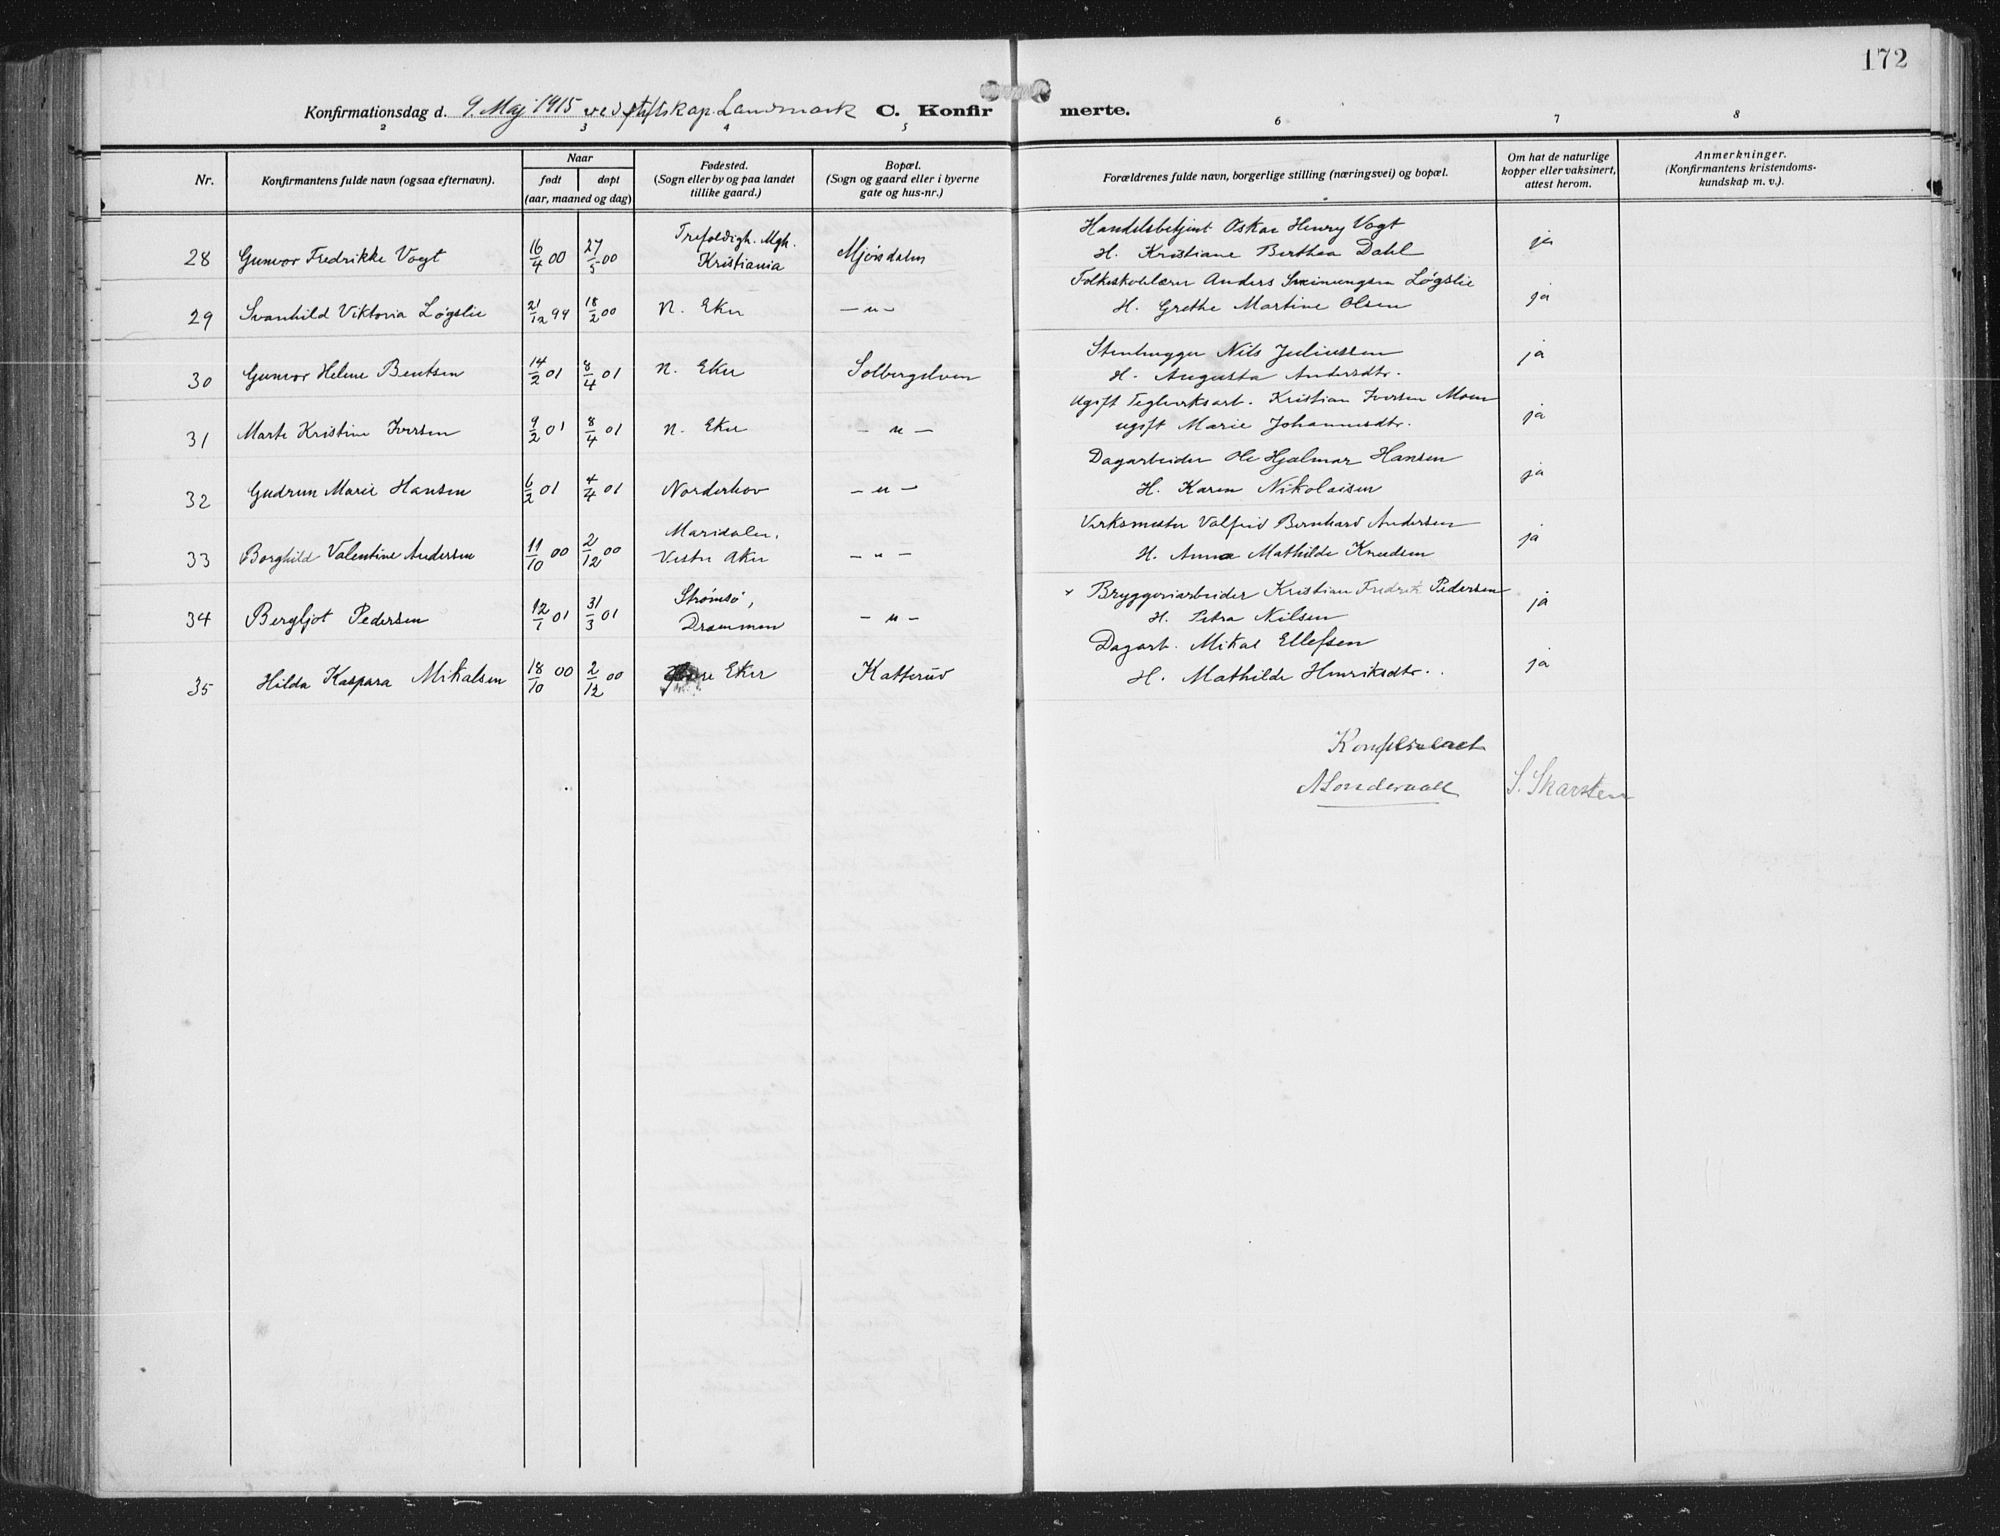 172
Konfirmationsdag d. 9. Maj 1915 ved stiftskap. Landmark C. Konfirmerte.
2 3 4 5 6 7 8
Nr. Konfirmantens fulde navn (ogsaa efternavn). Naar født døpt (aar, maaned og dag) Fødested. (Sogn eller by og paa landet tillike gaard.) Bopæl. (Sogn og gaard eller i byerne gate og hus-nr.) Forældrenes fulde navn, borgerlige stilling (næringsvei) og bopæl. Om hat de naturlige kopper eller vaksinert, attest herom. Anmerkninger. (Konfirmantens kristendoms-kundskap m. v.).
28 Gunvor Fredrikke Vogt 16/4 00 27/5 00 Trefoldigh. Mgh. Kristiania Mjøndalen Handelsbetjent Oskar Henry Vogt ja
H. Kristiane Berthea Dahl
29 Svanhild Viktoria Løgslie 21/12 99 18/2 00 N. Eker — " — Folkeskolelærer Anders Løgslie ja
H. Grethe Martine Olsen
30 Gunvor Helene Bentsen 14/2 01 8/4 01 N. Eker Solbergelven Stenhugger Nils Juliussen ja
H. Augusta Andersdtr.
31 Marte Kristine Iversen 9/2 01 8/4 01 N. Eker — " — Ugift Teglverksarb. Kristian Iversen Moen ja
ugift Marie Johannesdtr.
32 Gudrun Marie Hansen 6/2 01 4/4 01 Norderhov — " — Dagarbeider Ole Hjalmar Hansen ja
H. Karen Nikolaisen
33 Borghild Valentine Andersen 11/10 00 2/12 00 Maridalen, Vestre Aker — " — Verksmester Valfrid Bernhard Andersen ja
H. Anna Mathilde Knudsen
34 Bergljot Pedersen 12/1 01 31/3 01 Strømsø, Drammen — " — Bryggeriarbeider Kristian Fredrik Pedersen ja
H. Petra Nilsen
35 Hilda Kaspara Mikalsen 18/10 00 2/12 00 Eker Katterud Dagarb. Mikal Ellefsen ja
H. Mathilde Henriksdtr.
Konfereret
S. Skarsten